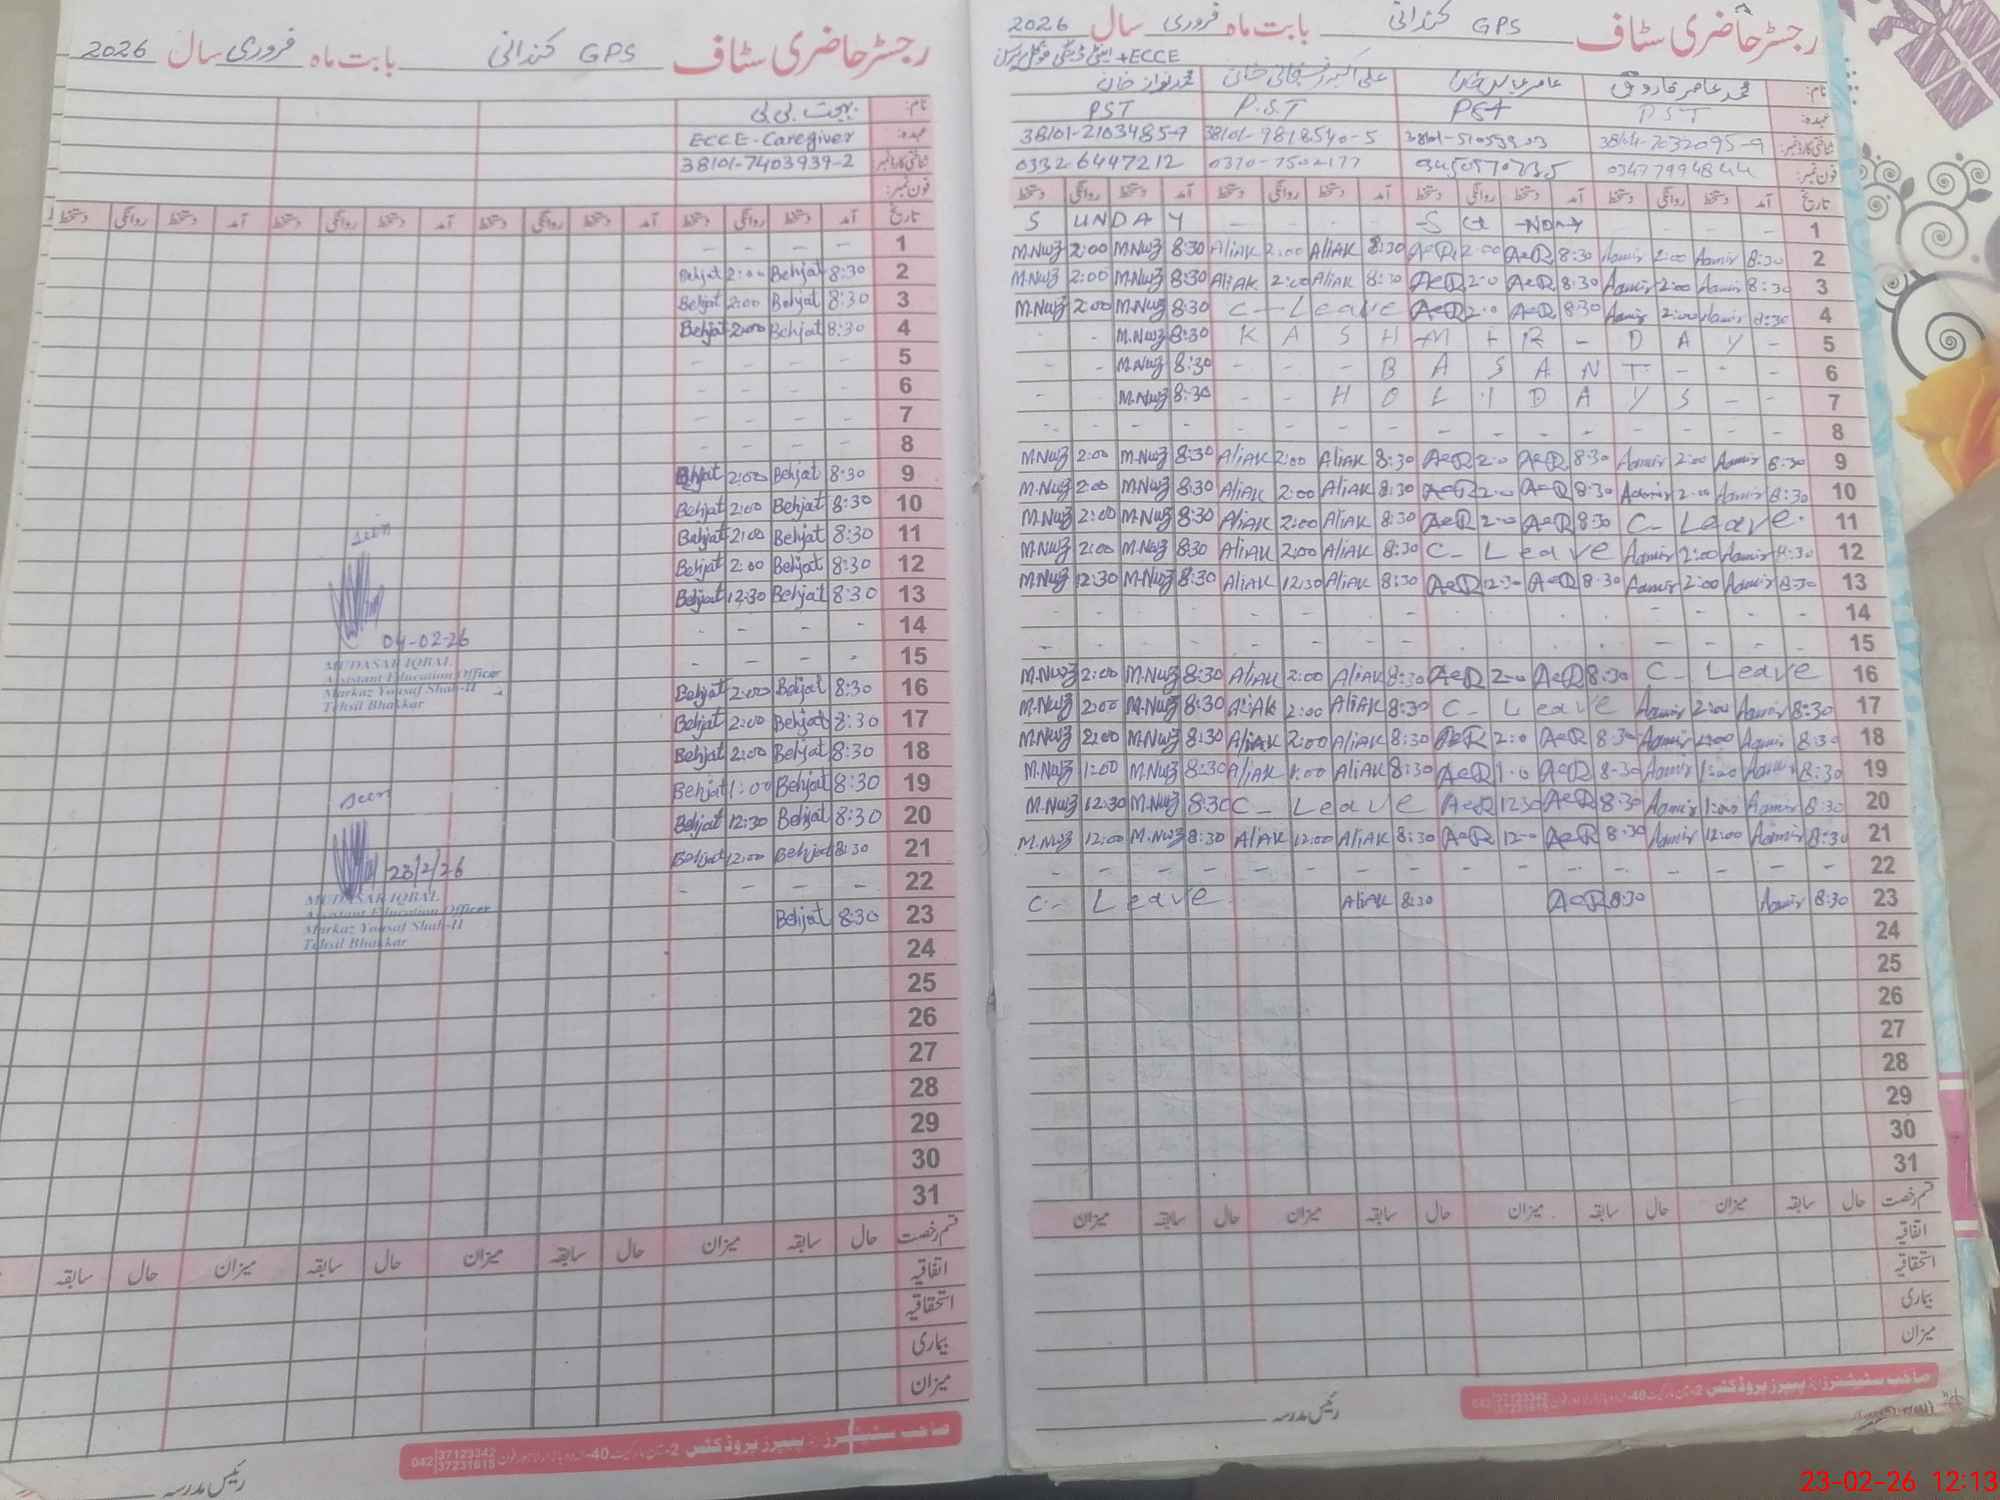 رجسٹر حاضری سٹاف GPS کندانی بابت ماہ فروری سال 2026
نام: بہجت بی بی
عہدہ: ECCE-Caregiver
شناختی کارڈ نمبر: 38101-7403939-2
فون نمبر:
تاریخ آمد دستخط روانگی دستخط آمد دستخط روانگی دستخط آمد دستخط روانگی دستخط آمد دستخط روانگی دستخط
1 - - - -
2 8:30 Behjat 2:00 Behjat
3 8:30 Behjat 2:00 Behjat
4 8:30 Behjat 2:00 Behjat
5 - - - -
6 - - - -
7 - - - -
8 - - - -
9 8:30 Behjat 2:00 Behjat
10 8:30 Behjat 2:00 Behjat
11 8:30 Behjat 2:00 Behjat
12 8:30 Behjat 2:00 Behjat
13 8:30 Behjat 12:30 Behjat
14 - - - -
15 - - - -
16 8:30 Behjat 2:00 Behjat
17 8:30 Behjat 2:00 Behjat
18 8:30 Behjat 2:00 Behjat
19 8:30 Behjat 1:00 Behjat
20 8:30 Behjat 12:30 Behjat
21 8:30 Behjat 12:00 Behjat
22 - - - -
23 8:30 Behjat
24
25
26
27
28
29
30
31
seen
04-02-26
MUDASAR IQBAL
Assistant Education Officer
Markaz Yousaf Shah-II
Tehsil Bhakkar
seen
23/2/26
MUDASAR IQBAL
Assistant Education Officer
Markaz Yousaf Shah-II
Tehsil Bhakkar
قسم رخصت حال سابقہ میزان حال سابقہ میزان حال سابقہ میزان حال سابقہ
اتفاقیہ
استحقاقیہ
بیماری
میزان
042 37123342
37231615
رئیس مدرسہ
رجسٹر حاضری سٹاف GPS کندانی بابت ماہ فروری سال 2026
+ECCE
نام: محمد عامر فاروق محمد نواز خان
عہدہ: PST PST P.S.T PST
شناختی کارڈ نمبر: 38101-9818540-5 38101-2103485-9
فون نمبر: 03477994844 0332-6447212
تاریخ آمد دستخط روانگی دستخط آمد دستخط روانگی دستخط آمد دستخط روانگی دستخط آمد دستخط روانگی دستخط
1 S UNDAY
2 8:30 Aamir 2:00 Aamir 8:30 2:00 8:30 AliAK 2:00 AliAK 8:30 M.Nwz 2:00 M.Nwz
3 8:30 Aamir 2:00 Aamir 8:30 2:0 8:30 AliAK 2:00 AliAK 8:30 M.Nwz 2:00 M.Nwz
4 8:30 Aamir 2:00 Aamir 8:30 2:0 C-Leave 8:30 M.Nwz 2:00 M.Nwz
5 KASHMIR - DAY - 8:30 M.Nwz - -
6 BASANT 8:30 M.Nwz - -
7 HOLIDAYS 8:30 M.Nwz - -
8 - - - -
9 8:30 Aamir 2:00 Aamir 8:30 2:0 8:30 AliAK 2:00 AliAK 8:30 M.Nwz 2:00 M.Nwz
10 8:30 Aamir 2:00 Aamir 8:30 2:0 8:30 AliAK 2:00 AliAK 8:30 M.Nwz 2:00 M.Nwz
11 C- Leave 8:30 2:0 8:30 AliAK 2:00 AliAK 8:30 M.Nwz 2:00 M.Nwz
12 8:30 Aamir 2:00 Aamir C- Leave 8:30 AliAK 2:00 AliAK 8:30 M.Nwz 2:00 M.Nwz
13 8:30 Aamir 2:00 Aamir 8:30 12:30 8:30 AliAK 12:30 AliAK 8:30 M.Nwz 12:30 M.Nwz
14 - - - -
15 - - - -
16 C- Leave 8:30 2:0 8:30 AliAK 2:00 AliAK 8:30 M.Nwz 2:00 M.Nwz
17 8:30 Aamir 2:00 Aamir C- Leave 8:30 AliAK 2:00 AliAK 8:30 M.Nwz 2:00 M.Nwz
18 8:30 Aamir 2:00 Aamir 8:30 2:0 8:30 AliAK 2:00 AliAK 8:30 M.Nwz 2:00 M.Nwz
19 8:30 Aamir 1:00 Aamir 8:30 1:0 8:30 AliAK 1:00 AliAK 8:30 M.Nwz 1:00 M.Nwz
20 8:30 Aamir 1:00 Aamir 8:30 12:30 C- Leave 8:30 M.Nwz 12:30 M.Nwz
21 8:30 Aamir 12:00 Aamir 8:30 12:0 8:30 AliAK 12:00 AliAK 8:30 M.Nwz 12:00 M.Nwz
22 - - - -
23 8:30 Aamir 8:30 8:30 AliAK C- Leave
24
25
26
27
28
29
30
31
قسم رخصت حال سابقہ میزان حال سابقہ میزان حال سابقہ میزان حال سابقہ میزان
اتفاقیہ
استحقاقیہ
بیماری
میزان
042 37123342
37231615
رئیس مدرسہ
23-02-26 12:13